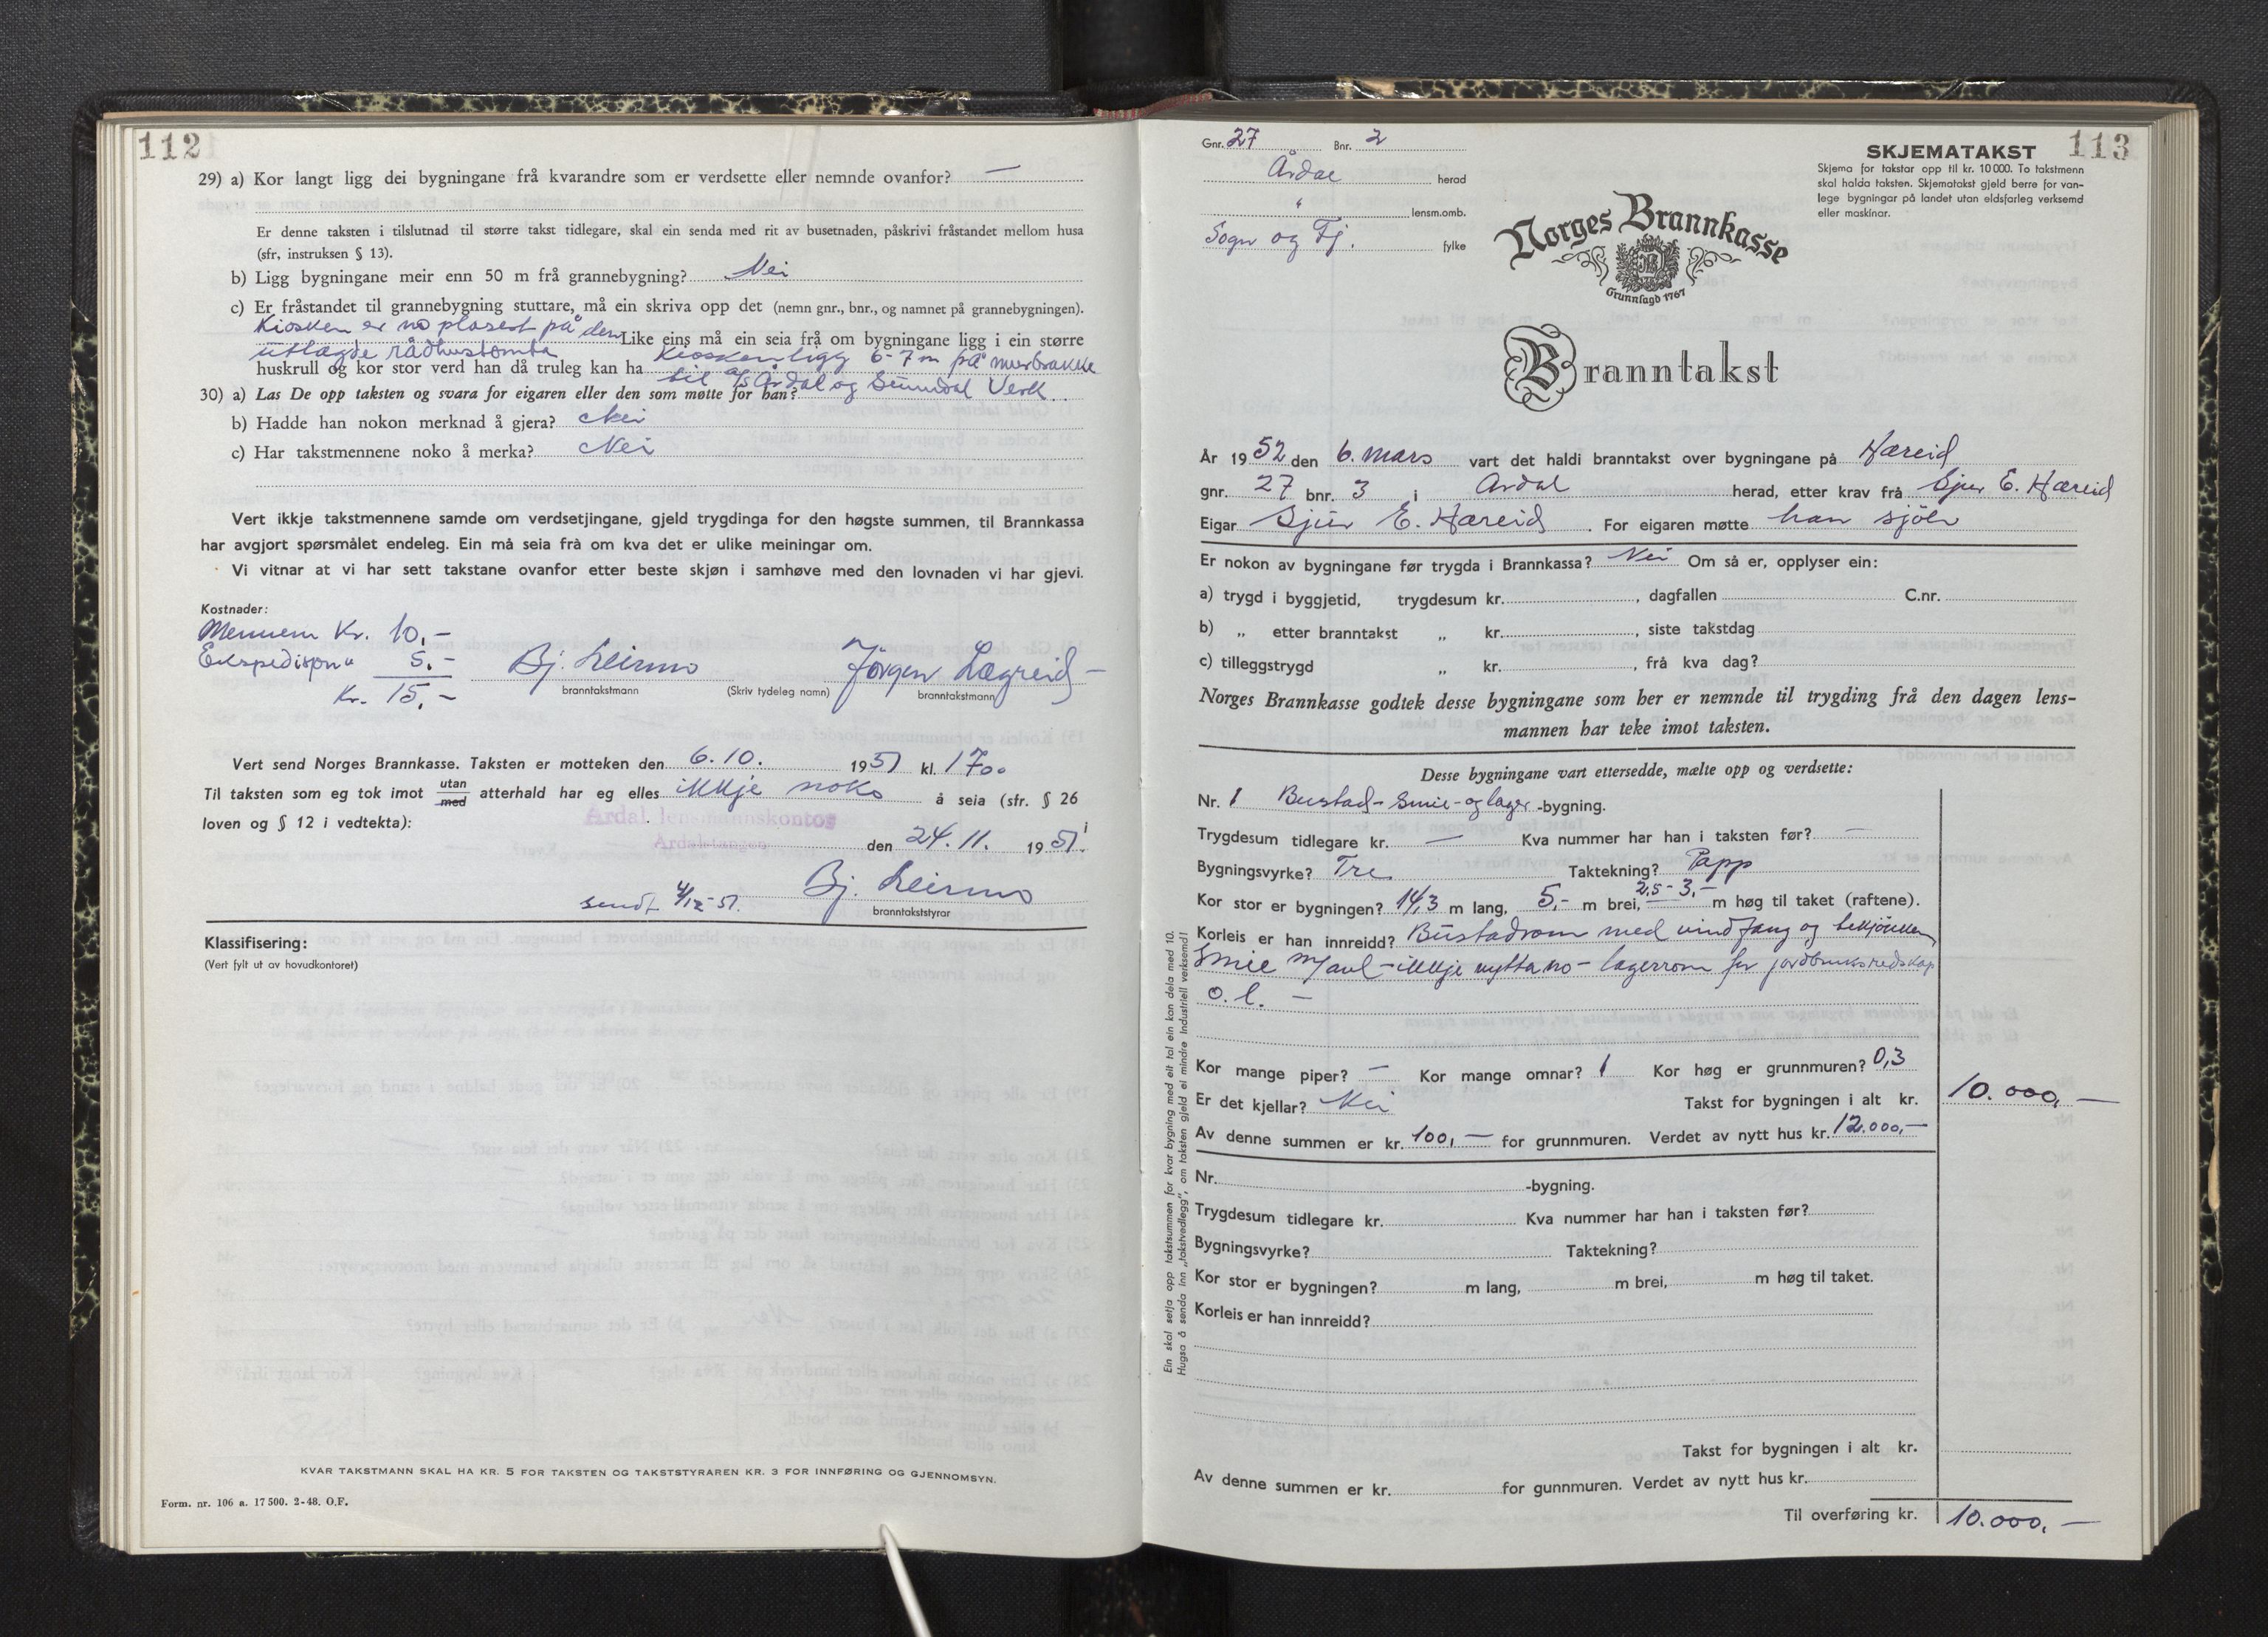 112
29) a) Kor langt ligg dei bygningane frå kvarandre som er verdsette eller nemnde ovanfor? —
Er denne taksten i tilslutnad til større takst tidlegare, skal ein senda med rit av busetnaden, påskrivi fråstandet mellom husa
(sfr, instruksen § 13).
b) Ligg bygningane meir enn 50 m frå grannebygning? Nei
c) Er fråstandet til grannebygning stuttare, må ein skriva opp det (nemn gnr., bnr., og namnet på grannebygningen).
Kiosken er no plasert på den Like eins må ein seia frå om bygningane ligg i ein større
utlagde rådhustomta
huskrull og kor stor verd han då truleg kan ha Kiosken ligg 6-7 m frå murbrakke
til a/s Årdal og Sunndal Verk.
30) a) Las De opp taksten og svara for eigaren eller den som møtte for han?
b) Hadde han nokon merknad å gjera? Nei
c) Har takstmennene noko å merka? Nei
Vert ikkje takstmennene samde om verdsetjingane, gjeld trygdinga for den høgste summen, til Brannkassa
har avgjort spørsmålet endeleg. Ein må seia frå om kva det er ulike meiningar om.
Vi vitnar at vi har sett takstane ovanfor etter beste skjøn i samhøve med den lovnaden vi har gjevi.
Kostnader:
Mennem Kr. 10,-
Ekspedisjon " 5.-
Kr. 15,-
Bj. Leirmo Jörgen Lægreid-
branntakstmann (Skriv tydeleg namn) branntakstmann
Vert send Norges Brannkasse. Taksten er motteken den 6.10. 1951 kl. 17oo
Til taksten som eg tok imot utan/med atterhald har eg elles ikkje noko å seia (sfr. § 26 i
loven og § 12 i vedtekta):
Årdal lensmannskontor
Årdalstangen den 24.11. 1951.
sendt 4/12-51. Bj. Leirmo
branntakststyrar
Klassifisering:
(Vert fylt ut av hovudkontoret)
KVAR TAKSTMANN SKAL HA KR. 5 FOR TAKSTEN OG TAKSTSTYRAREN KR. 3 FOR INNFØRING OG GJENNOMSYN.
Form. nr. 106 a. 17 500. 2-48. O.F.
113
Gnr. 27 Bnr. 2
Årdal herad
" lensm.omb.
Sogn og Fj. fylke
SKJEMATAKST
Skjema for takstar opp til kr. 10 000. To takstmenn
skal halda taksten. Skjematakst gjeld berre for van-
lege bygningar på landet utan eldsfarleg verksemd
eller maskinar.
Norges Brannkasse
Grunnlagd 1767
Branntakst
År 1952 den 6. mars vart det haldi branntakst over bygningane på Hæreid
gnr. 27 bnr. 3 i Årdal herad, etter krav frå Sjur E. Hæreid
Eigar Sjur E. Hæreid. For eigaren møtte han sjölv
Er nokon av bygningane før trygda i Brannkassa? Nei Om så er, opplyser ein:
a) trygd i byggjetid, trygdesum kr. , dagfallen C.nr.
b) „ etter branntakst „ kr. , siste takstdag
c) tilleggstrygd „ kr. , frå kva dag?
Norges Brannkasse godtek desse bygningane som her er nemnde til trygding frå den dagen lens-
mannen har teke imot taksten.
Desse bygningane vart ettersedde, mælte opp og verdsette:
Nr. 1 Bustad- Smie- og lager -bygning.
Trygdesum tidlegare kr. — Kva nummer har han i taksten før? —
Bygningsvyrke? Tre Taktekning? Papp
Kor stor er bygningen? 14,3 m lang, 5,- m brei, 2,5-3,- m høg til taket (raftene).
Korleis er han innreidd? Bustadrom med vindfang og tekjökken,
Smie m/avl - ikkje nytta no - lagerrom for jordbruksredskap
o.l. —
Kor mange piper? — Kor mange omnar? 1 Kor høg er grunnmuren? 0,3
Er det kjellar? Nei Takst for bygningen i alt kr. 10.000,—
Av denne summen er kr. 100,— for grunnmuren. Verdet av nytt hus kr. 12.000,—
Nr. -bygning.
Trygdesum tidlegare kr. Kva nummer har han i taksten før?
Bygningsvyrke? Taktekning?
Kor stor er bygningen? m lang, m brei, m høg til taket.
Korleis er han innreidd?
Takst for bygningen i alt kr.
Av denne summen er kr. for gunnmuren. Verdet av nytt hus kr.
Til overføring kr. 10.000,—
Ein skal setja opp takstsummen for kvar bygning med eit tal ein kan dela med 10.
Hugsa å senda inn „takstvedlegg", om taksten gjeld ei mindre industriell verksemd!